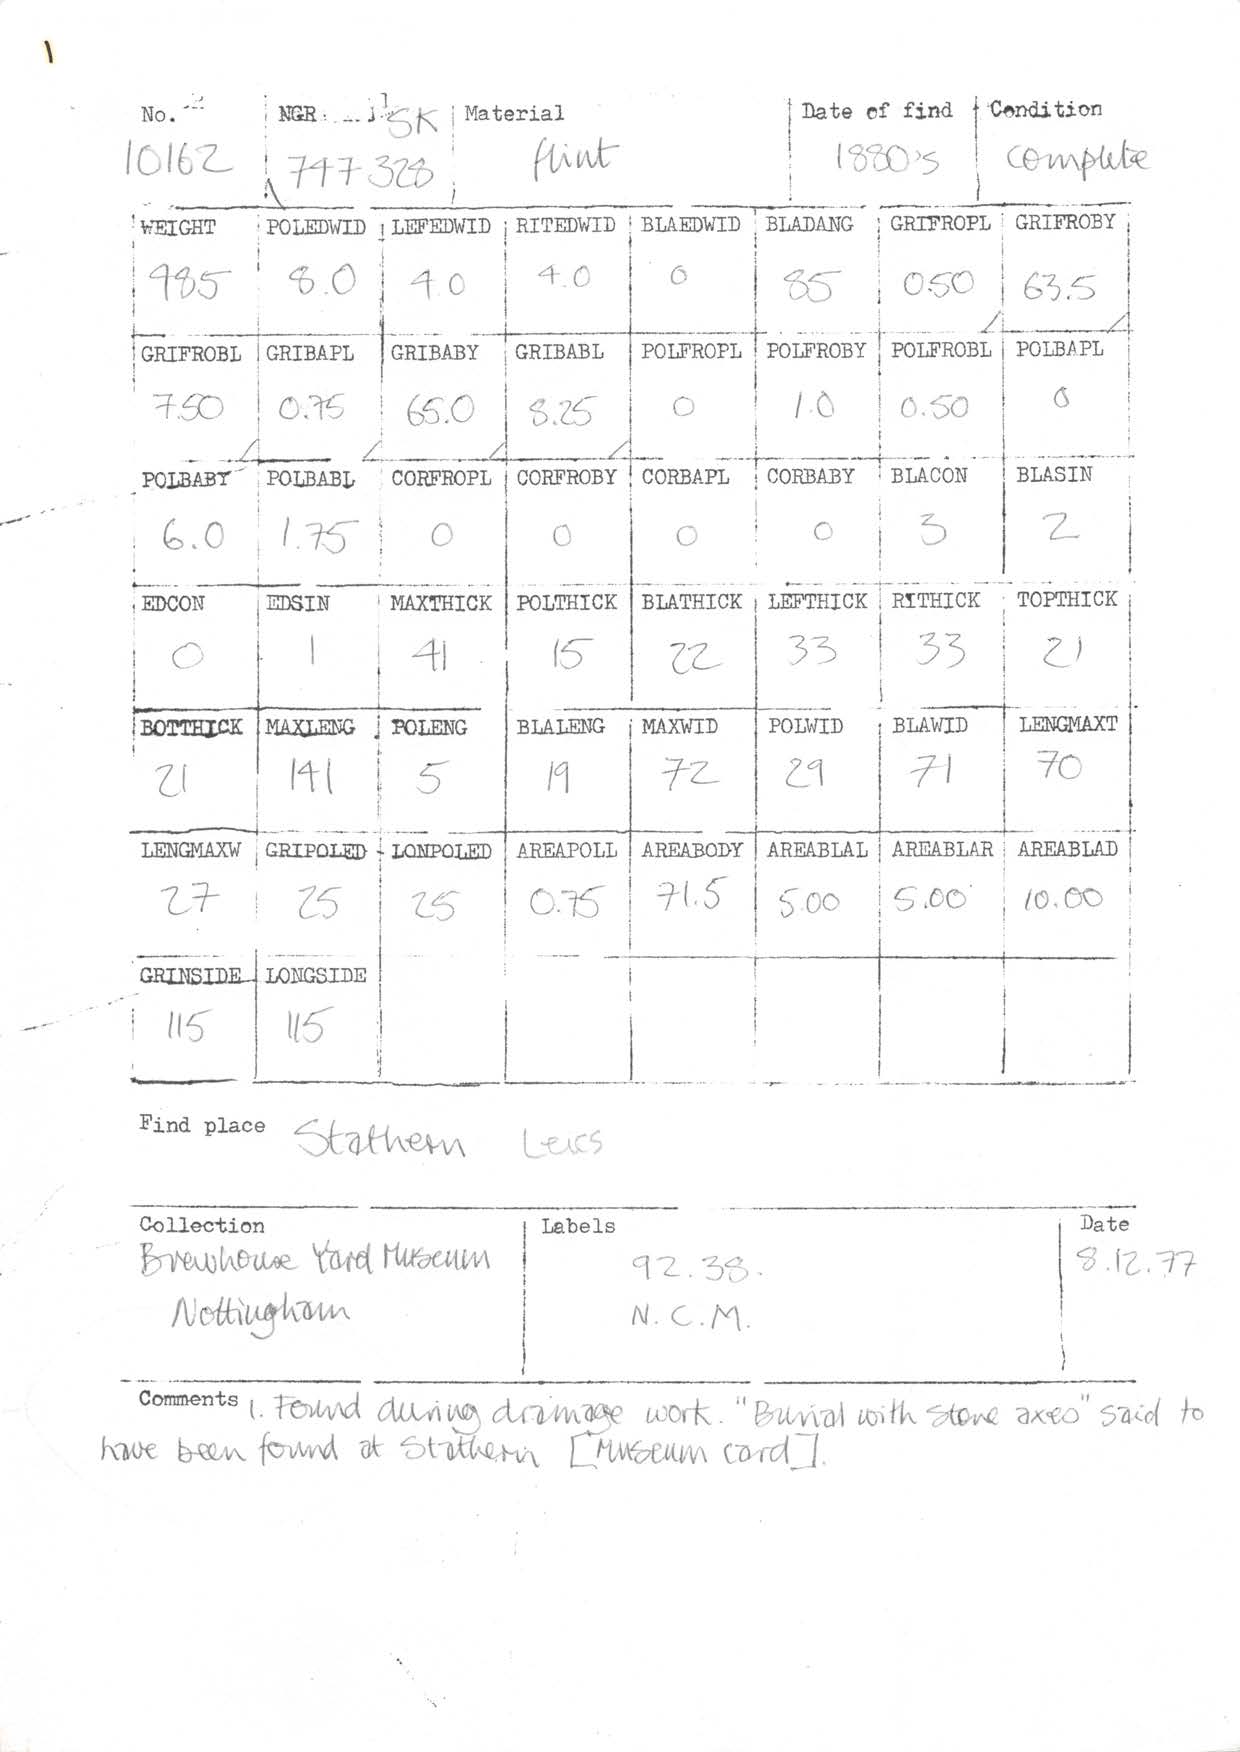 1
No. NGR SK Material Date of find Condition
10162 747328 flint 1880's complete
WEIGHT POLEDWID LEFEDWID RITEDWID BLAEDWID BLADANG GRIFROPL GRIFROBY
985 8.0 4.0 4.0 0 85 0.50 63.5
GRIFROBL GRIBAPL GRIBABY GRIBABL POLFROPL POLFROBY POLFROBL POLBAPL
7.50 0.75 65.0 8.25 0 1.0 0.50 0
POLBABY POLBABL CORFROPL CORFROBY CORBAPL CORBABY BLACON BLASIN
6.0 1.75 0 0 0 0 3 2
EDCON EDSIN MAXTHICK POLTHICK BLATHICK LEFTHICK RITHICK TOPTHICK
0 1 41 15 22 33 33 21
BOTTHICK MAXLENG POLENG BLALENG MAXWID POLWID BLAWID LENGMAXT
21 141 5 19 72 29 71 70
LENGMAXW GRIPOLED LONPOLED AREAPOLL AREABODY AREABLAL AREABLAR AREABLAD
27 25 25 0.75 71.5 5.00 5.00 10.00
GRINSIDE LONGSIDE
115 115
Find place Stathern Leics
Collection Labels Date
Brewhouse Yard Museum 92.38. 8.12.77
Nottingham N.C.M.
Comments 1. Found during drainage work. "Burial with stone axes" said to
have been found at Stathern [Museum card].